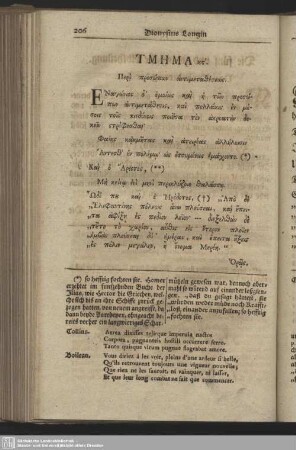 206 Dionysius Longin
ΤΜΗΜΑ κϛ'.
Περὶ προσώπων ἀντιμεταθέσεως.
ΕΝαγώνιος δ' ὁμοίως καὶ ἡ τῶν προσώ-
πων ἀντιμετάθεσις, καὶ πολλάκις ἐν μέ-
σοις τοῖς κινδύνοις ποιοῦσα τὸν ἀκροατὴν δο-
κεῖν στρέφεσθαι·
Φαίης κ' ἀκμῆτας καὶ ἀτειρέας ἀλλήλοισιν
Ἄντεσθ' ἐν πολέμῳ· ὡς ἐσσυμένως ἐμάχοντο (*)
Καὶ ὁ Ἄρατος, (**)
Μὴ κείνῳ ἐνὶ μηνὶ περικλύζοιο θαλάσσῃ.
Ὧδέ που καὶ ὁ Ἡρόδοτος, (†) „Ἀπὸ δὲ
„Ἐλεφαντίνης πόλεως ἄνω πλεύσεαι, καὶ ἔπει-
„τα ἀπίξῃ ἐς πεδίον λεῖον·
„τοῦτο τὸ χωρίον, αὖθις εἰς ἕτερον πλοῖον
πλεύσεαι ἡμέρας, καὶ ἔπειτα ἥξεις
„ἐς πόλιν μεγάλην, ᾗ ὄνομα Μερόη."
Ὁρᾷς,
(*) so hefftig fochten sie. Homer
erzehlet im funfzehnden Buche der
Ilias, wie Hector die Griechen, wel-
che sich bis an ihre Schiffe zurück ge-
zogen hatten, von neuem angreift, da
dann beyde Partheyen, ohngeacht be-
reits vorher ein langwieriges Schar-
mützeln gewesen war, dennoch aber-
mahl so wütend auf einander losgien-
gen, daß es gesagt hätten, sie
würden weder müde noch kraft-
loß, einander anzufallen; so hefftig
fochten sie.
Collins. Aurea
Corpora, pugnantes hostili occurrere ferro,
Tanto quisque virum pugnae flagrabat amore.
Boileau. Vous diriez à les voir, pleins d'une ardeur si belle,
Qu'ils retrouvent toujours une vigueur nouvelle;
Que rien ne les sauroit, ni vaincre, ni lasser,
Et que leur long combat ne fait que commencer.